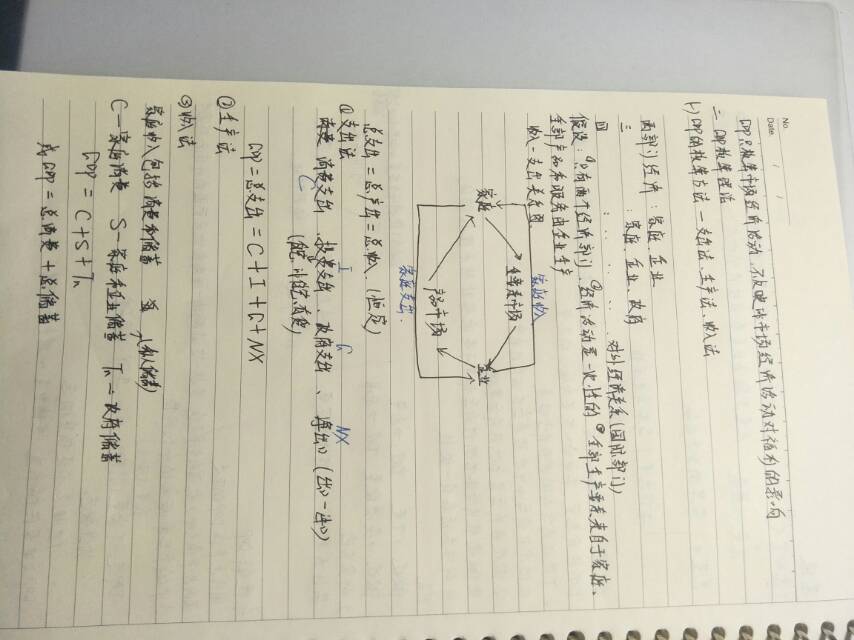 No.
Date / /
GDP只核算市场经济活动，不反映非市场经济活动对福利的影响
二 GDP核算理论
(一) GDP的核算方法 — 支出法、生产法、收入法
两部门经济：家庭、企业
三 ：家庭、企业、政府
四 对外经济关系(国际部门)
假设：①只有两个经济部门 ②经济活动是一次性的 ③全部生产要素来自于家庭、
全部产品和服务由企业生产
收入-支出关系图
家庭收入
家庭
生产要素市场
产品市场
企业
家庭支出
总支出=总产出=总收入 (恒定)
①支出法
消费支出、投资支出、政府支出、净出口 (出口-进口)
C I G NX
GDP=总支出=C+I+G+NX
②生产法
③收入法
家庭收入包括消费和储蓄
(私人储蓄)
C—家庭消费 S—家庭和企业储蓄 Tn—政府储蓄
GDP = C+S+Tn
或GDP=总消费+总储蓄